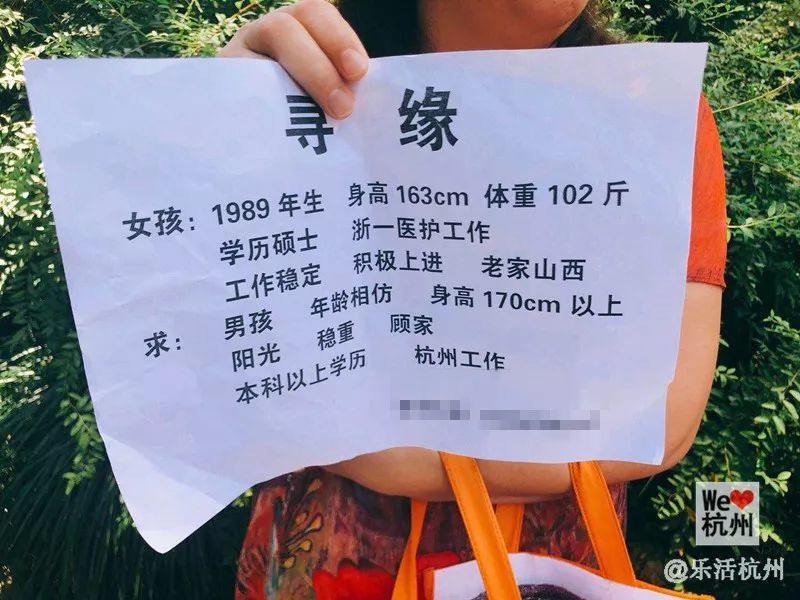 寻 缘
女孩：1989年生 身高163cm 体重102斤
学历硕士 浙一医护工作
工作稳定 积极上进 老家山西
求：男孩 年龄相仿 身高170cm以上
阳光 稳重 顾家
本科以上学历 杭州工作
We❤
杭州
@乐活杭州